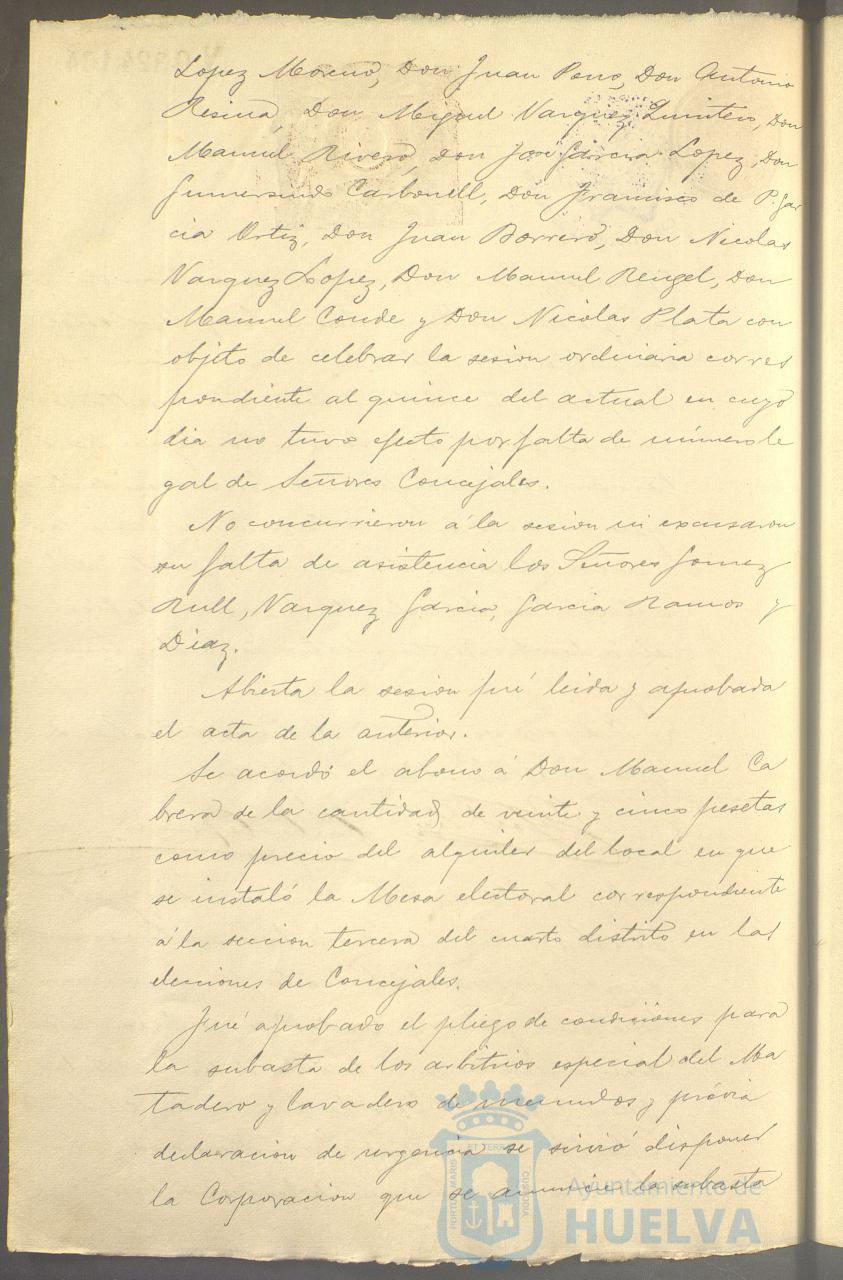 Lopez Moreno, Don Juan Pons, Don Antonio
Resina, Don Miguel Vazquez Quintero, Don
Manuel Rivero, Don José Garcia Lopez, Don
Gumersindo Carbonell, Don Francisco de P. Gar
cia Ortiz, Don Juan Borrero, Don Nicolas
Vazquez Lopez, Don Manuel Rengel, Don
Manuel Conde y Don Nicolas Plata con
objeto de celebrar la sesion ordinaria corres
pondiente al quince del actual en cuyo
dia no tuvo efecto por falta de número le
gal de Señores Concejales.
No concurrieron á la sesion ni excusaron
su falta de asistencia los Señores Gomez
Rull, Vazquez Garcia, Garcia Ramos y
Diaz.
Abierta la sesion fué leida y aprobada
el acta de la anterior.
Se acordó el abono á Don Manuel Ca
brera de la cantidad de veinte y cinco pesetas
como precio del alquiler del local en que
se instaló la Mesa electoral correspondiente
á la seccion tercera del cuarto distrito en las
elecciones de Concejales.
Fué aprobado el pliego de condiciones para
la subasta de los arbitrios especial del Ma
tadero y lavadero de menudos y prévia
declaracion de urgencia se sirvió disponer
la Corporacion que se anuncie la subasta
PORTUS MARIS ET TERRAE CUSTODIA
Ayuntamiento de
HUELVA